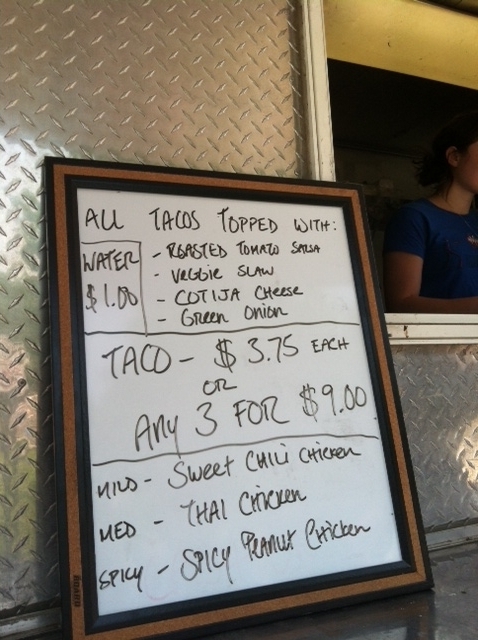 ALL TACOS TOPPED WITH:
WATER
$1.00
- ROASTED TOMATO SALSA
- VEGGIE SLAW
- COTIJA CHEESE
- GREEN ONION
TACO - $3.75 EACH
OR
ANY 3 FOR $9.00
MILD - SWEET CHILI CHICKEN
MED - THAI CHICKEN
SPICY - SPICY PEANUT CHICKEN